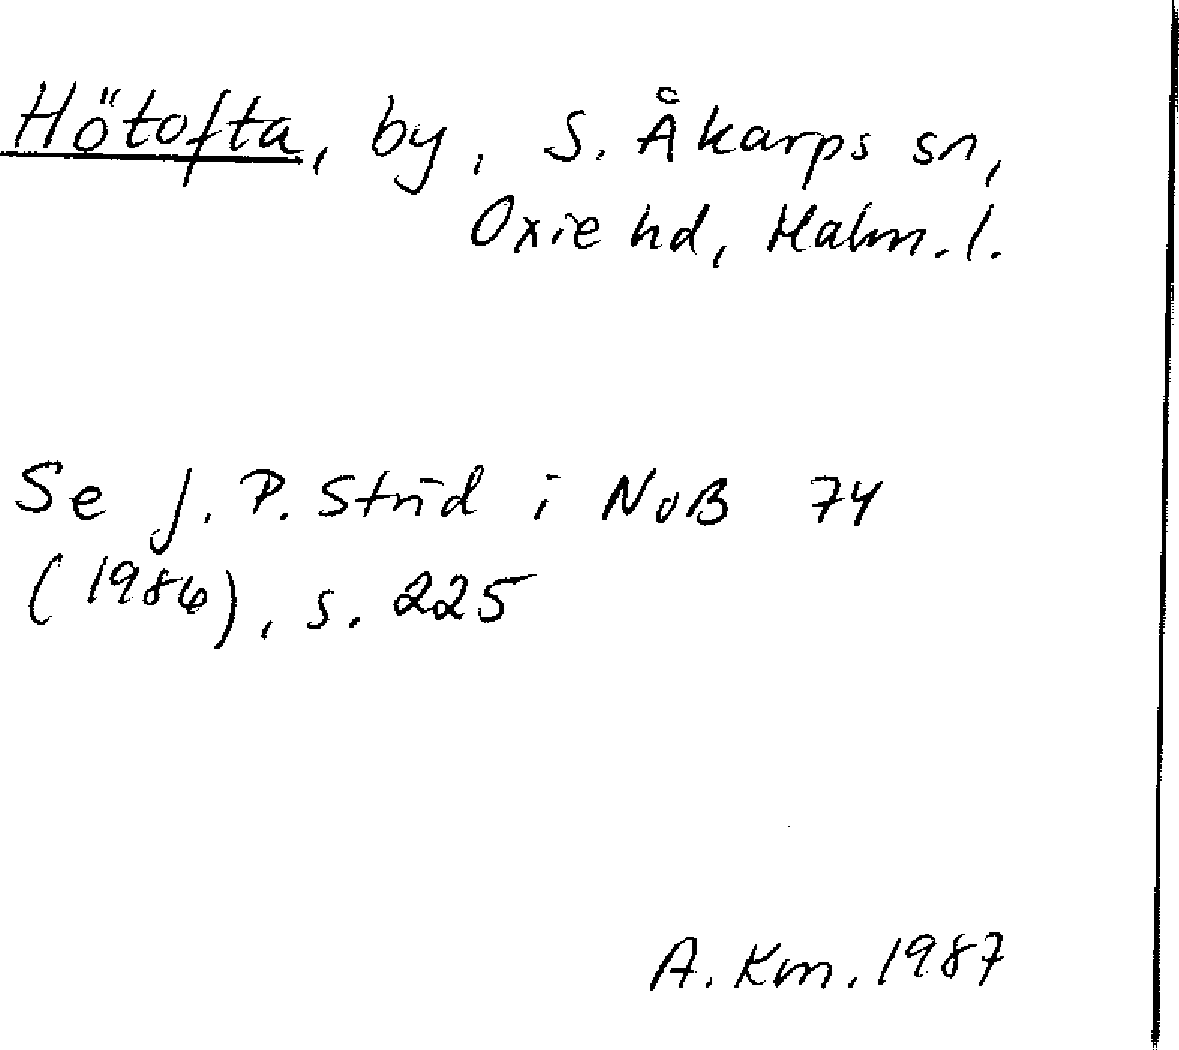 Hötofta, by, S. Åkarps sn,
Oxie hd, Malm. l.
Se J. P. Strid i NoB 74
(1986), s. 225
A. Km. 1987